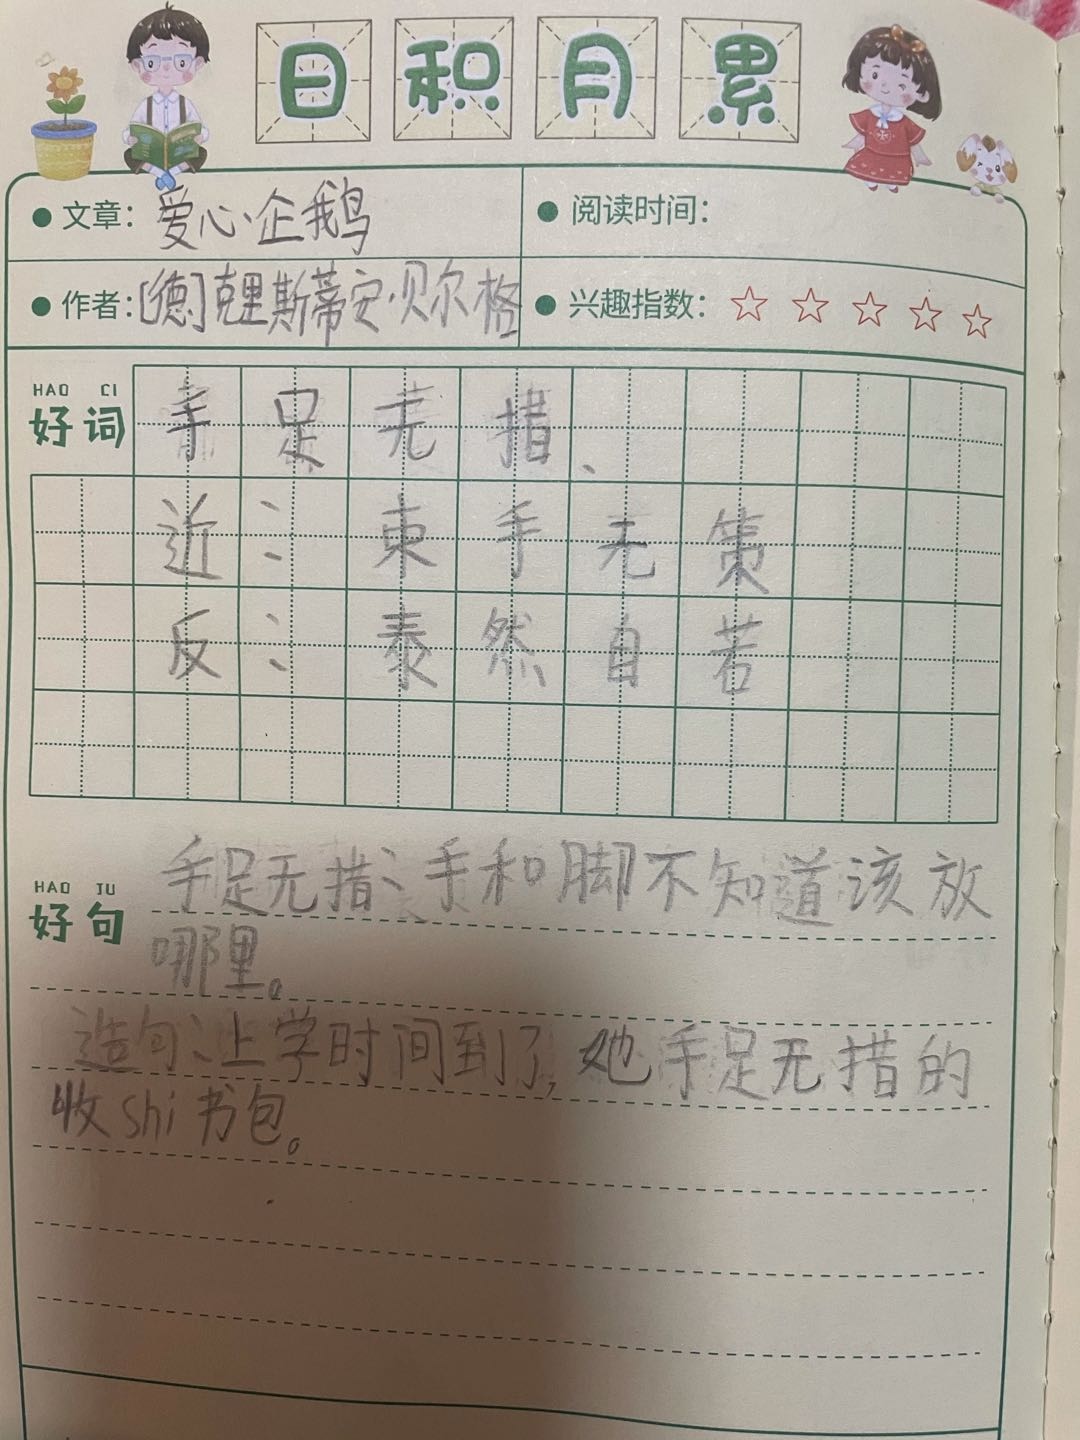 日积月累
文章：爱心企鹅
阅读时间：
作者：[德]克里斯蒂安·贝尔格
兴趣指数：☆☆☆☆☆
HAO CI
好词
手足无措、
近：束手无策
反：泰然自若
HAO JU
好句
手足无措：手和脚不知道该放
哪里。
造句：上学时间到了，她手足无措的
收shi书包。